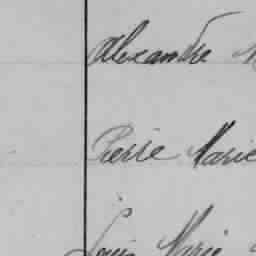 Alexandre
Pierre Marie
Louis Marie